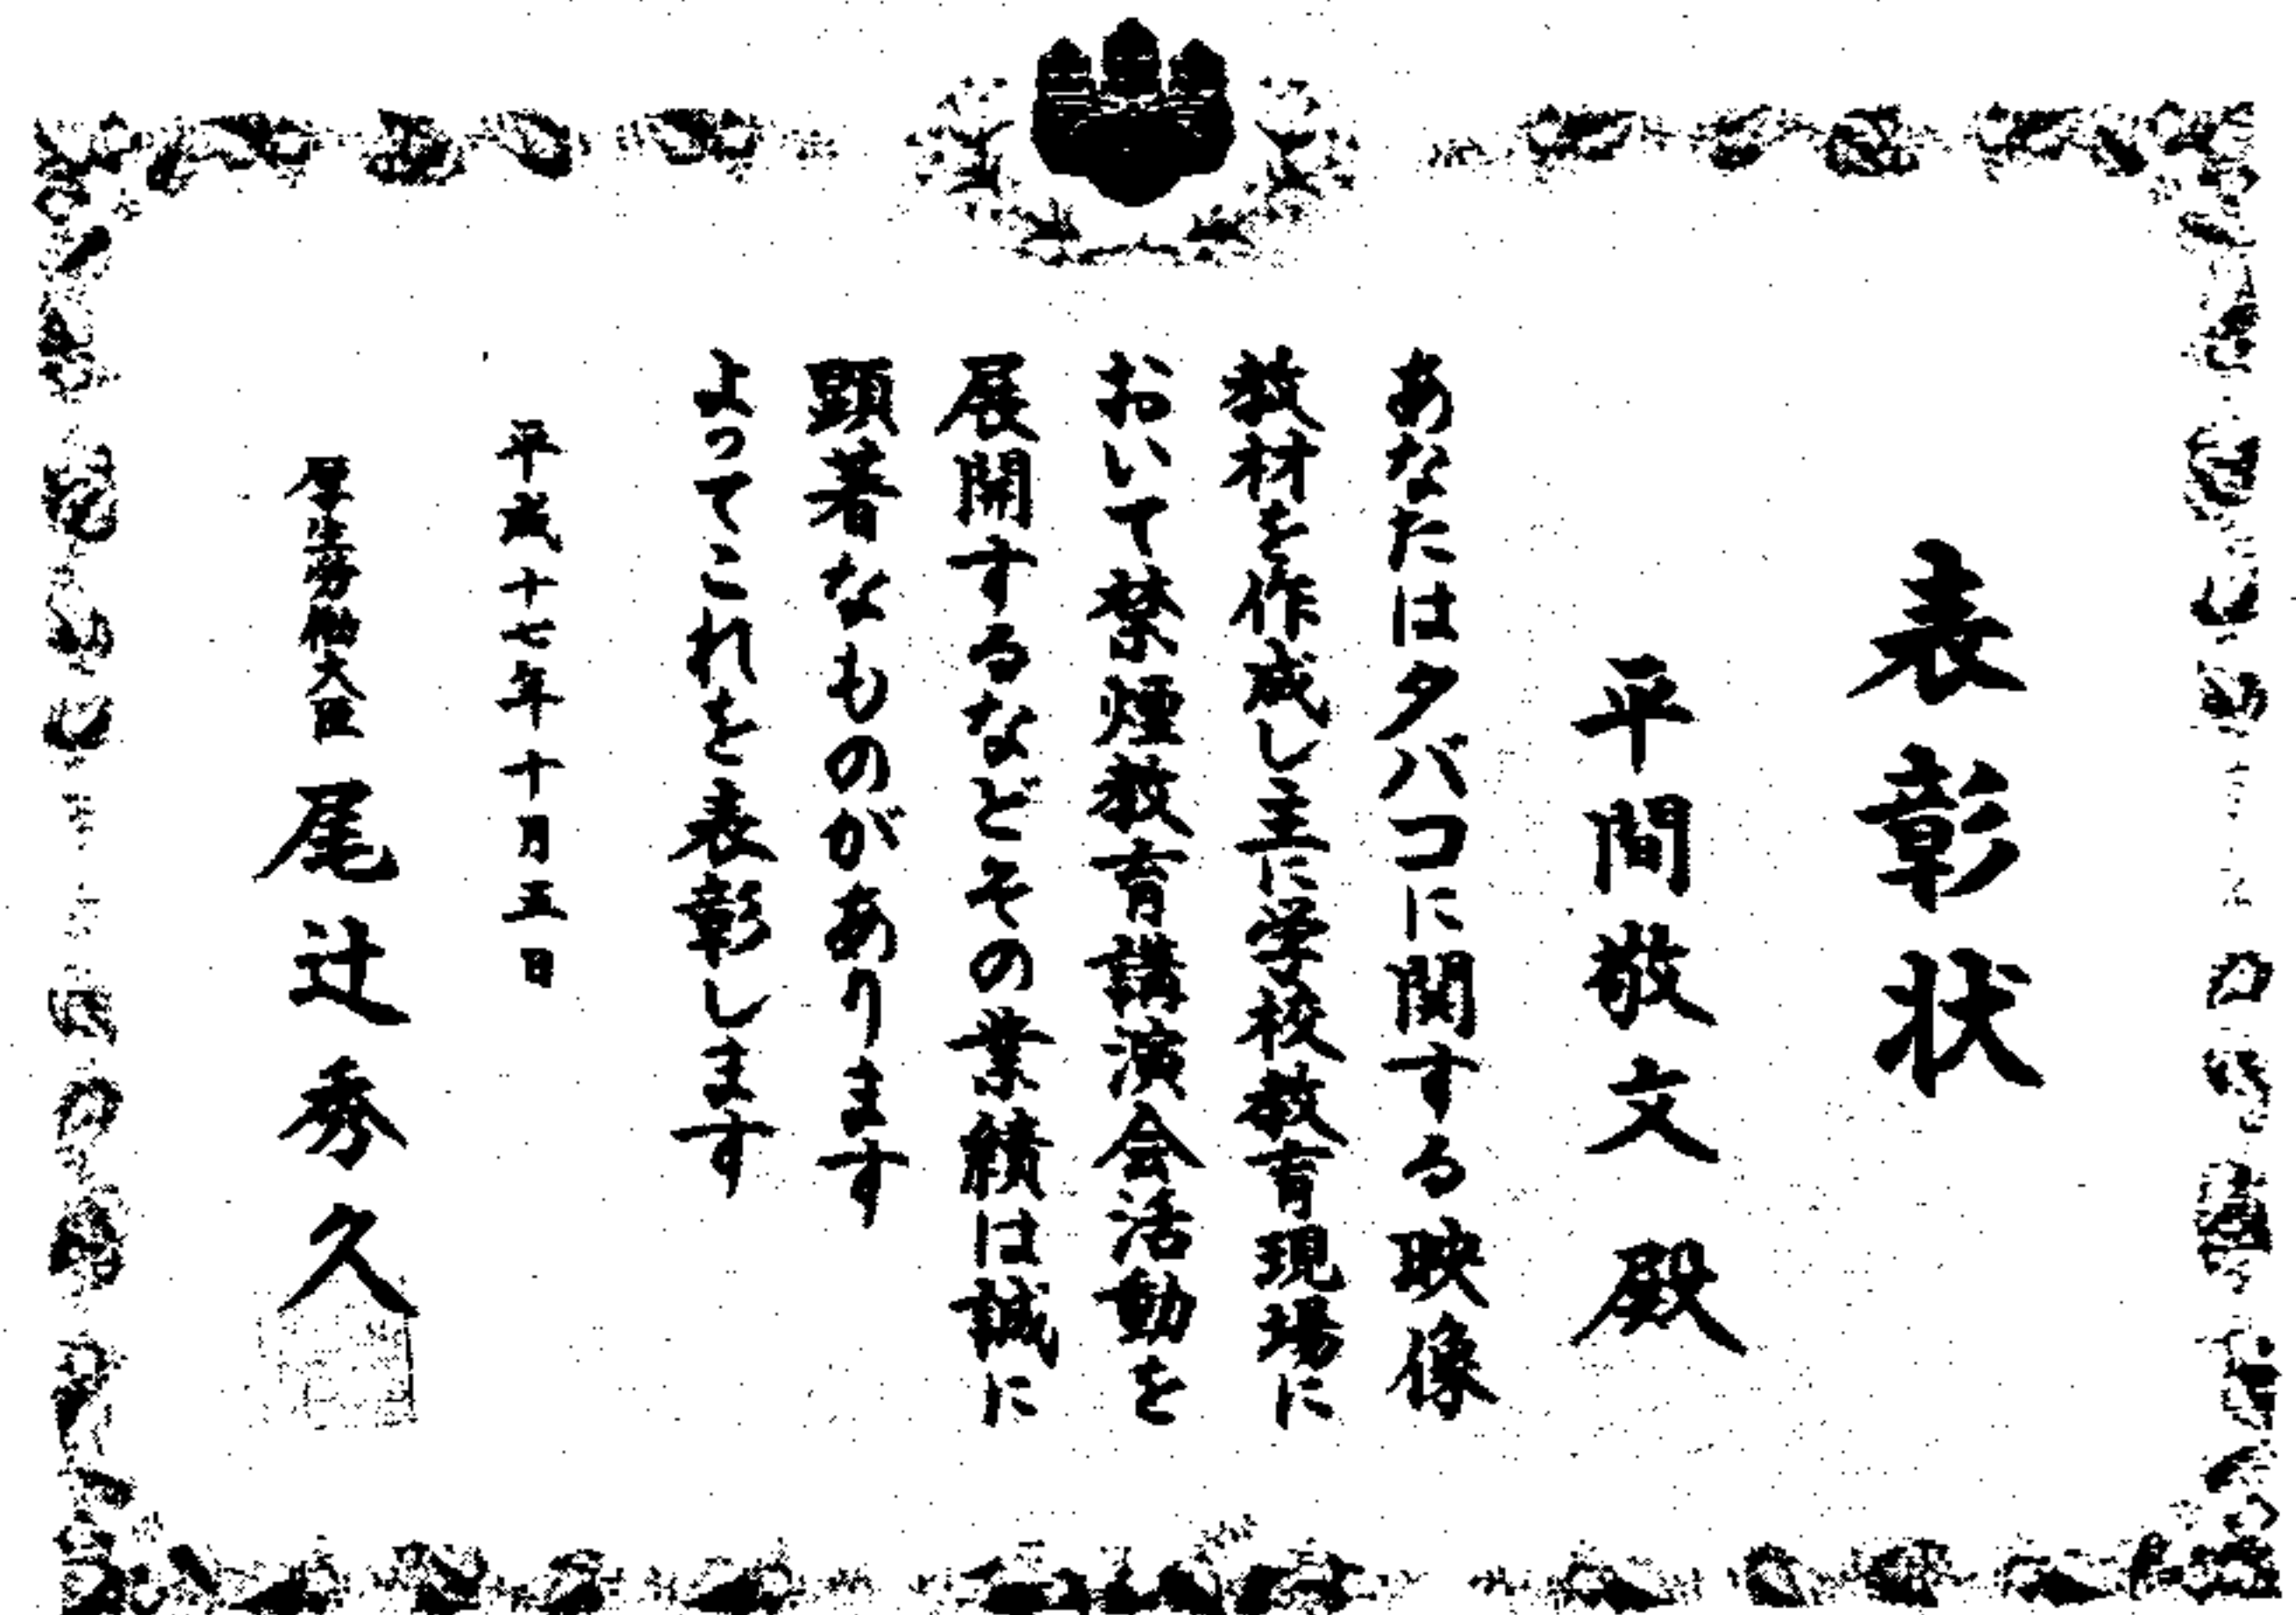 表彰状
平間敬文殿
あなたはタバコに関する映像
教材を作成し主に学校教育現場に
おいて禁煙教育講演会活動を
展開するなどその業績は誠に
顕著なものがあります
よってこれを表彰します
平成十七年十月五日
厚生労働大臣 尾辻秀久